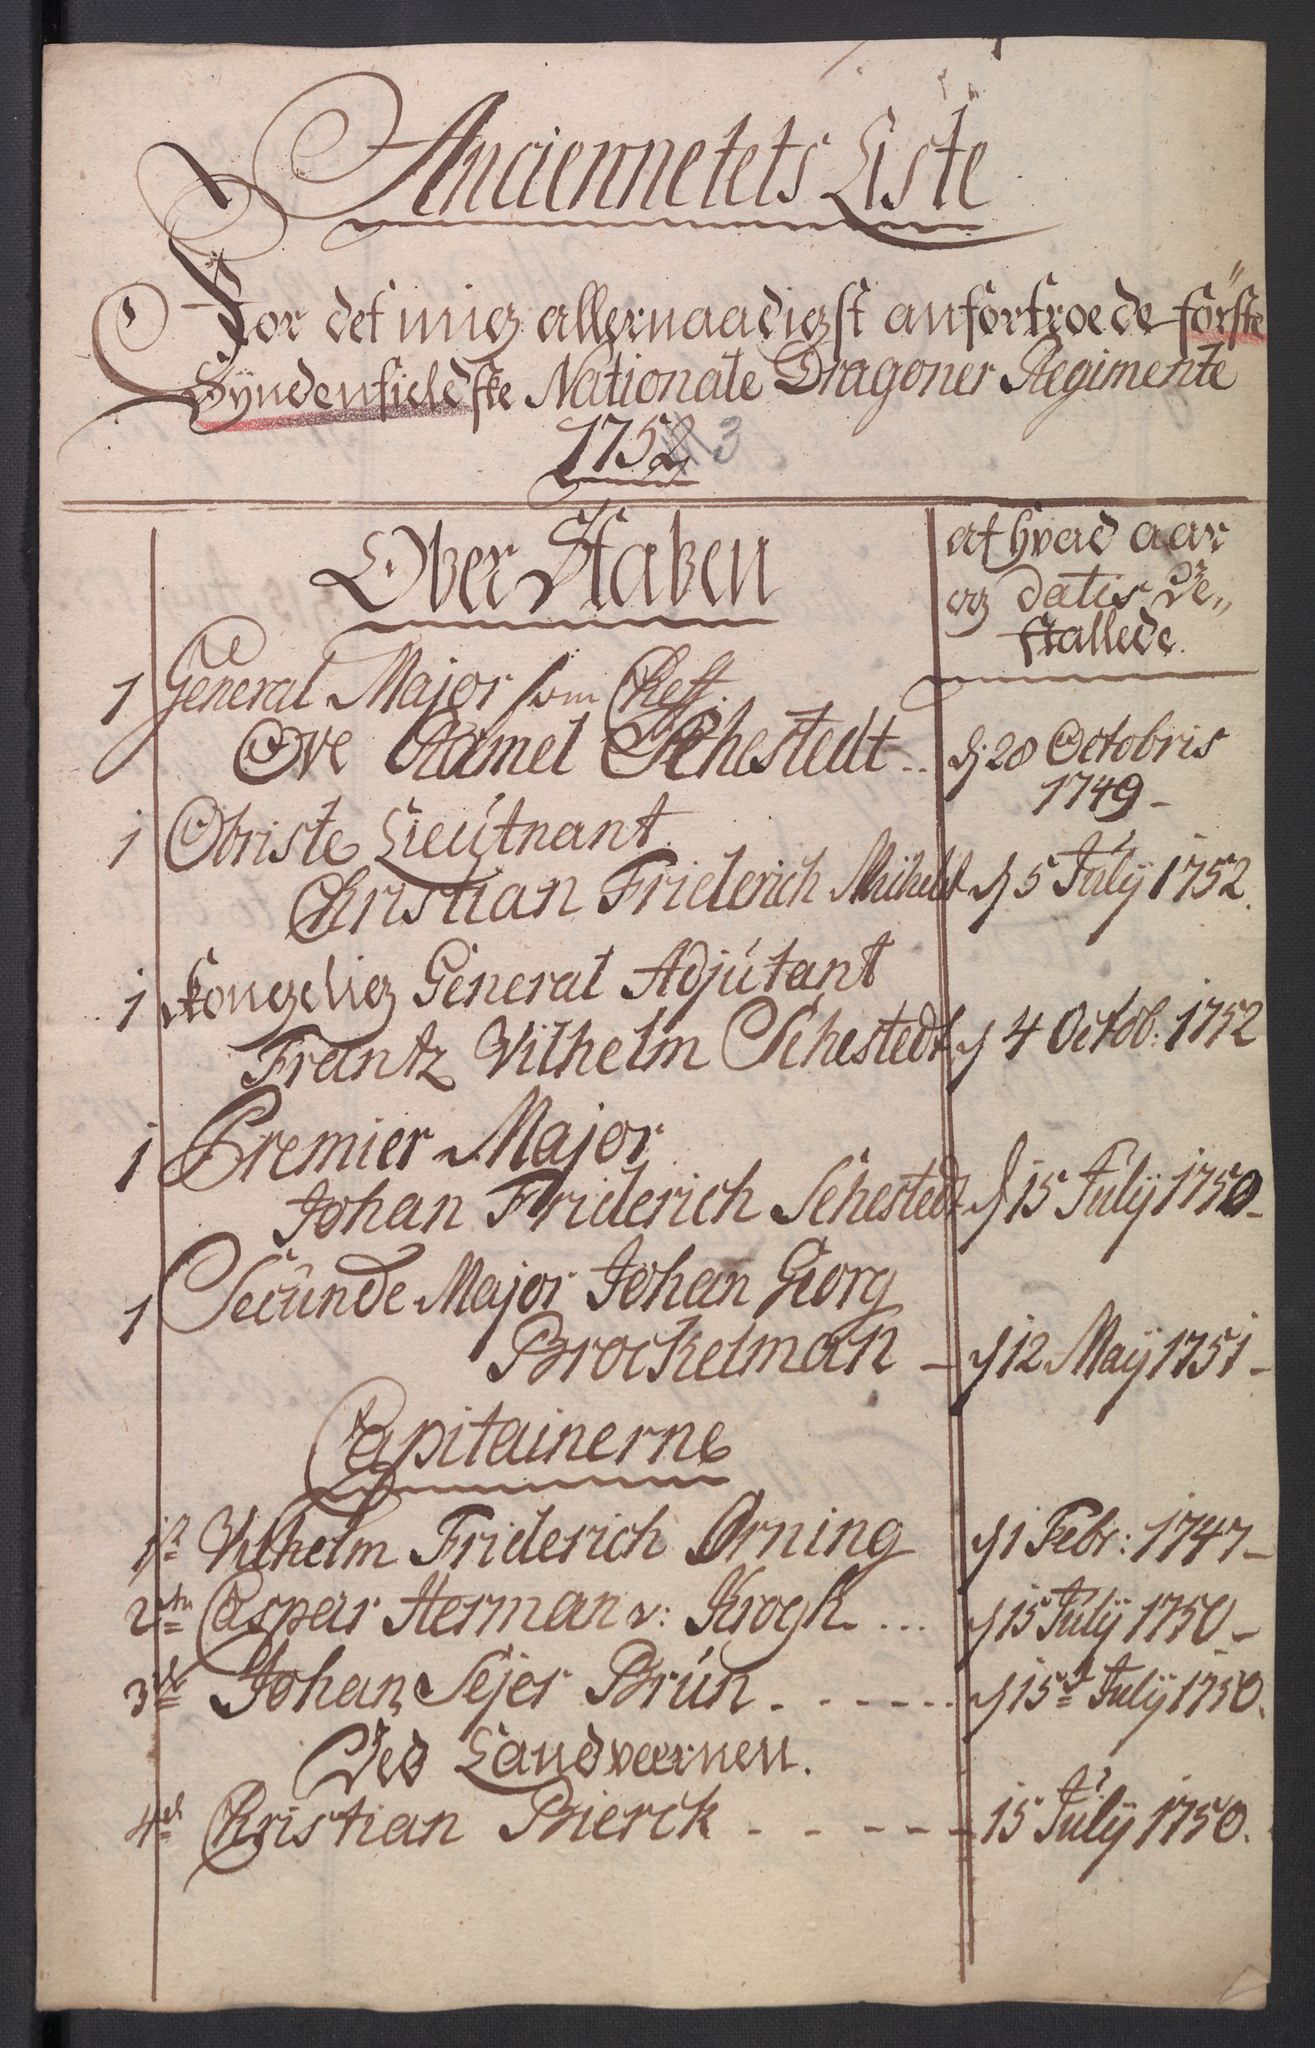 Anciennetets Liste
For det mig allernaadigst anfortroede förste
Syndenfieldske Nationale Dragoner Regimente
1752 3
Ober Staben
af hvad aar
og datis Be„
stallede.
1 General Major som Cheff.
Ove Ramel Sehestedt .. d: 28 Octobris
1749 -
1 Obriste Lieutnant
Christian Friderich d 5 July 1752.
1 Kongelig General Adjutant
Frantz Vilhelm Sehestedt d 4 Octob: 1752
1 Premier Major
Johan Friderich Sehestedt d 15 July 1750 -
1 Secunde Major Johan Georg
Brockelman - d 12 Maij 1751 -
Capitainerne
1st Vilhelm Friderich Ørning d 1 Febr: 1747 -
2den Casper Herman v: Krogh ... d 15 July 1750 -
3de Johan Sejer Brun . - - - .. d 15de July 1750.
Ved Landværnen.
4de Christian Bierck - - - - - 15 July 1750.